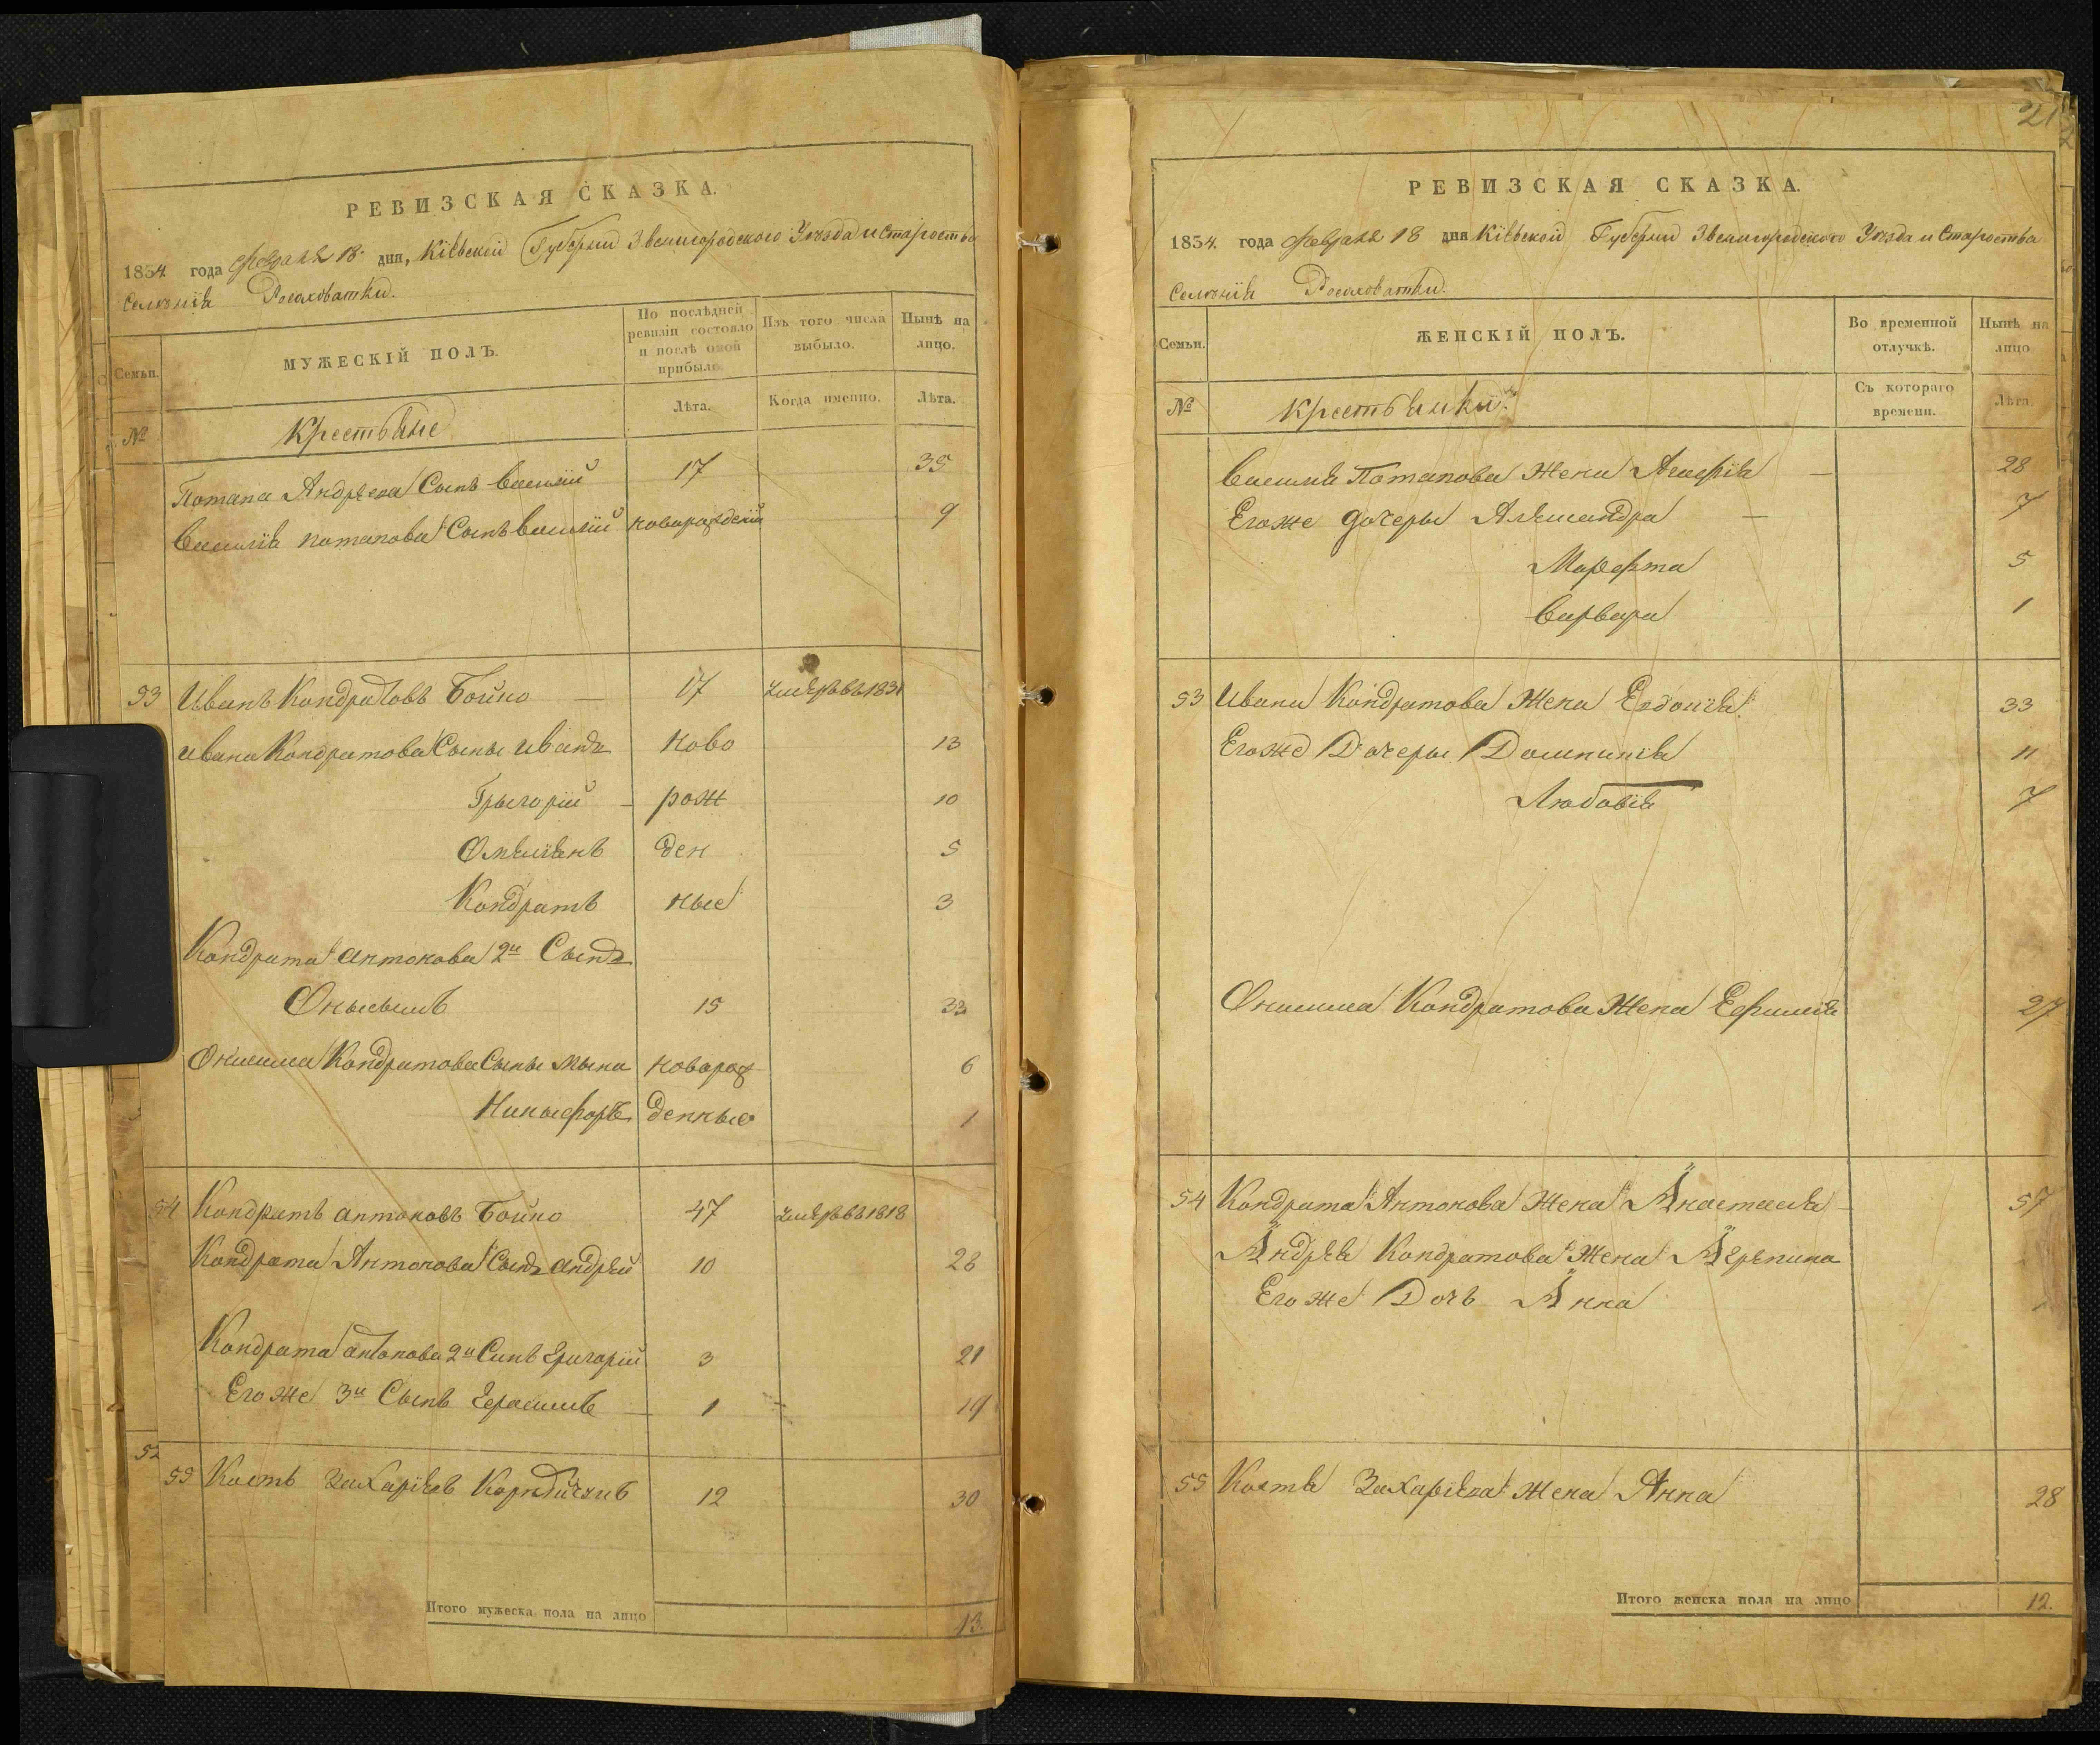 РЕВИЗСКАЯ СКАЗКА.
1854 года Февраля 18 дня, Кіевской Губерніи Звенигородского Уѣзда и Староства
Селенія Рогаховатки.
Семьи.
МУЖЕСКІЙ ПОЛЪ.
По послѣдней ревизіи состояло и послѣ оной прибыло
Изъ того числа выбыло.
Нынѣ на лицо.
№
Крестьяне
Лѣта.
Когда именно.
Лѣта.
Потапа Андреева Сынъ Василій 17 35
Василія потапова Сынъ василій новорожденій 9
53 Иванъ Кондратовъ Бойко 17 умеръ въ 183
Ивана Кондратова Сыны Иванъ ново 13
Грыгорій рож 10
Омеліянъ ден 5
Кондратъ ные 3
Кондрата антонова 2й Сынъ
Онысымъ 15 33
Онисима Кондратова Сыны Мына новорож 6
Никыфоръ денные 1
54 Кондратъ антоновъ Бойко 47 умеръ въ 1818
Кондрата Антонова Сынъ андрей 10 28
Кондрата антонова 2й Синъ Григорій 3 21
Егоже 3й Сынъ Герасимъ 1 19
52
55 Кость Захаріевъ 12 30
Итого мужеска пола на лицо 13.
21
РЕВИЗСКАЯ СКАЗКА.
1854. года Февраля 18 дня Кіевской Губерніи Звенигородского Уѣзда и Староства
Селенія Рогаховатки.
Семьи.
ЖЕНСКІЙ ПОЛЪ.
Во временной отлучкѣ.
Нынѣ на лицо
№
Крестьянки.
Съ котораго времени.
Лѣта.
Василія Потапова Жена Агафія 28
Егоже дочеры Александра 7
Марфта 5
Варвара 1
53 Ивана Кондратова Жена Евдокія 33
Егоже Дочеры Домникія 11
Любовія 7
Онисима Кондратова Жена Ефимія 27
54 Кондрата Антонова Жена Анастасія 57
Андрея Кондратова Жена Агрепина
Егоже Дочь Анна
55 Костя Захаріева жена Анна 28
Итого женска пола на лицо 12.